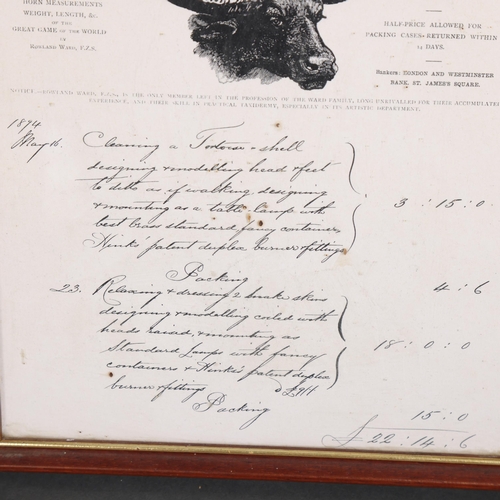 HORN MEASUREMENTS
WEIGHT, LENGTH, &c.
OF THE
GREAT GAME OF THE WORLD
BY
ROWLAND WARD, F.Z.S.
HALF-PRICE ALLOWED FOR
PACKING CASES RETURNED WITHIN
14 DAYS.
Bankers: LONDON AND WESTMINSTER
BANK, ST. JAMES'S SQUARE.
NOTICE.—ROWLAND WARD, F.Z.S., IS THE ONLY MEMBER LEFT IN THE PROFESSION OF THE WARD FAMILY, LONG UNRIVALLED FOR THEIR ACCUMULATED
EXPERIENCE, AND THEIR SKILL IN PRACTICAL TAXIDERMY, ESPECIALLY IN ITS ARTISTIC DEPARTMENT.
1894
May 16. Cleaning a Tortoise-shell
designing & modelling head & feet
to ditto as if walking, designing
& mounting as a table lamp with 3 : 15 : 0
best brass standard, fancy container,
Hinks patent duplex burner & fittings
Packing 4 : 6
23. Relaxing & dressing 2 snake skins
designing & modelling coiled with
heads raised, & mounting as 18 : 0 : 0
Standard Lamps with fancy
containers & Hinks's patent duplex
burner & fittings
Packing 15 : 0
£ 22 : 14 : 6